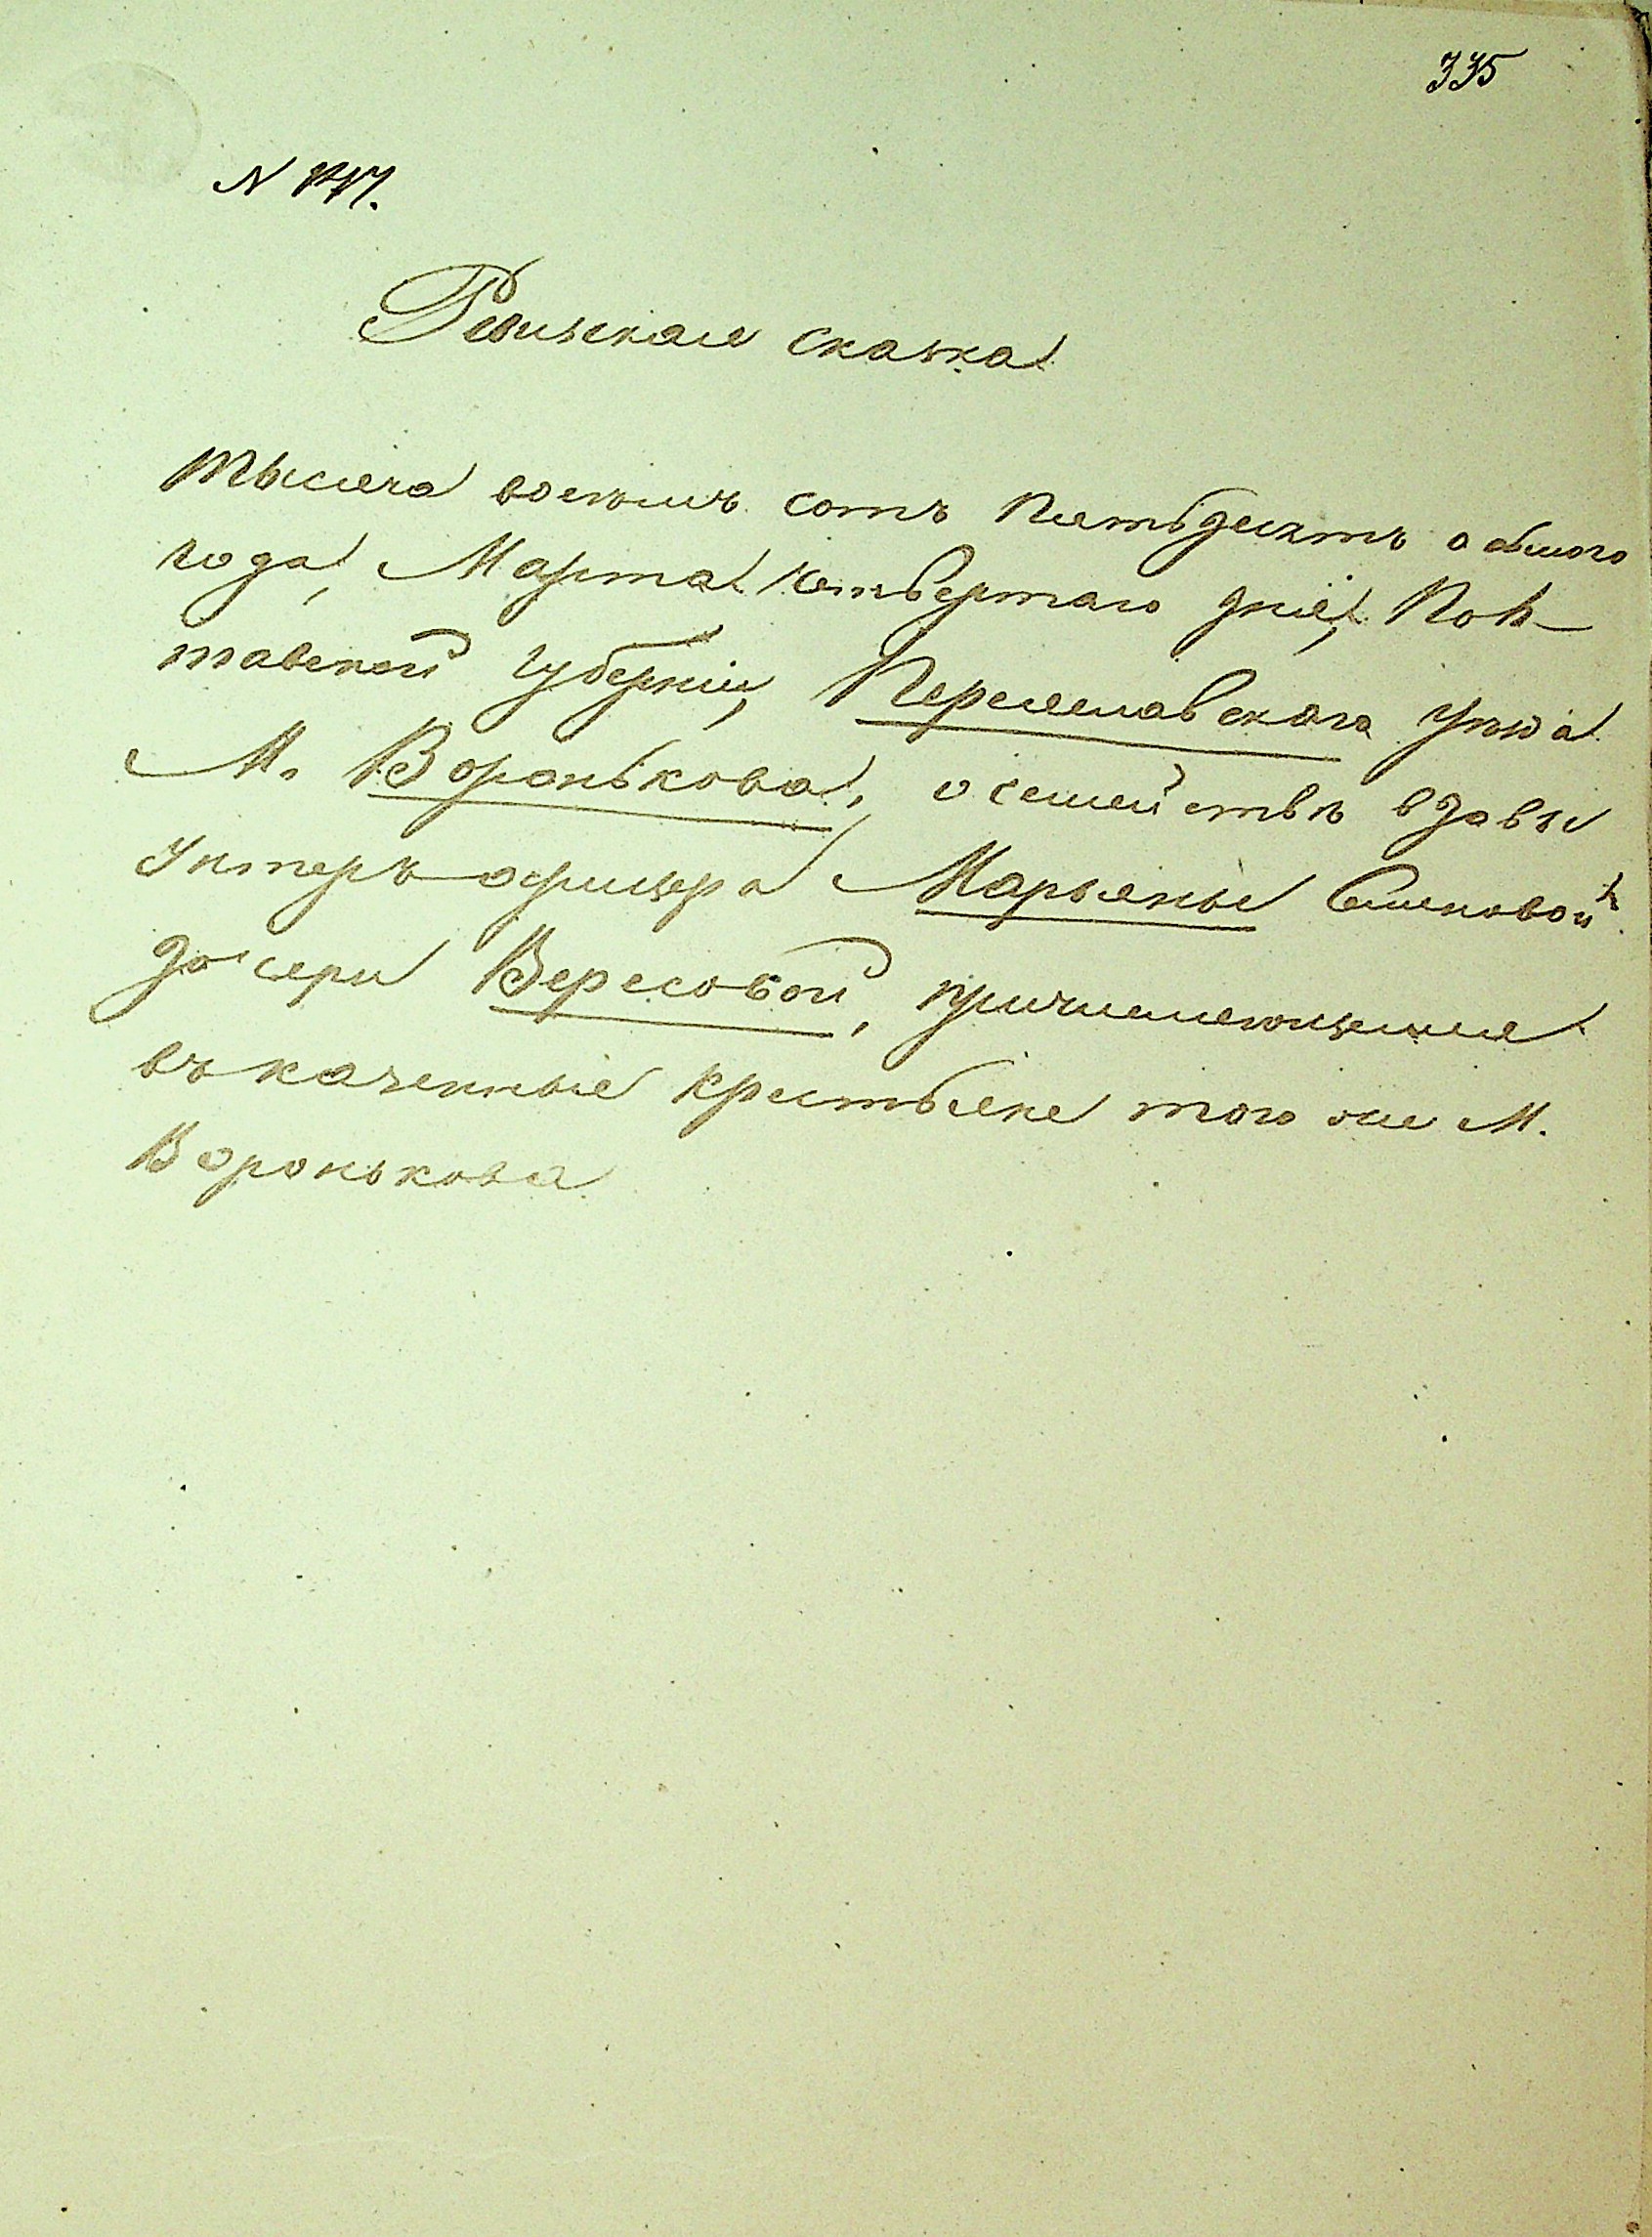 335
N
Ревизская сказка
Тысяча восемь сотъ Пятьдесятъ осьмого
года, Марта четвертаго дня, Пол-
тавской губерніи, Переяславскаго уезда
М. Воронькова, о семействѣ вдовы
унтеръ-офицера Марьяны Семеновой
дочери Вересовой, причисляющемся
въ казенные крестьяне того же М.
Воронькова